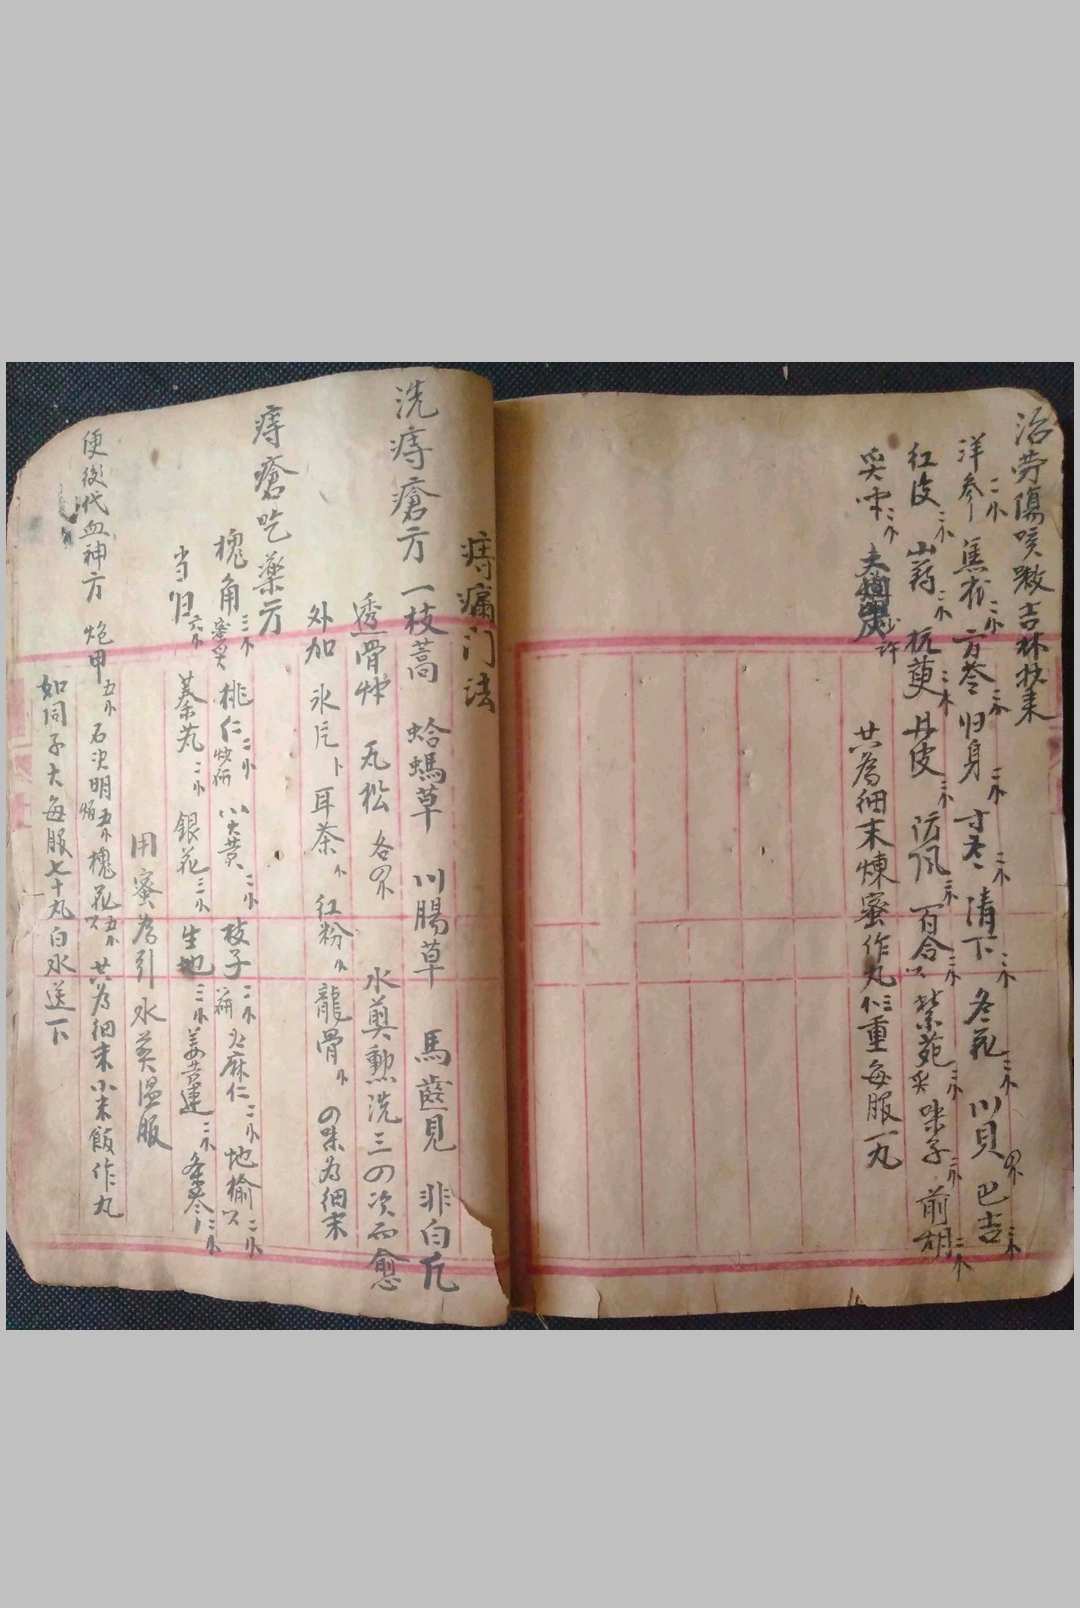 治劳傷咳嗽吉林抄来
洋参二小 焦术二小 方苓二小 归身二小 寸冬二小 清下二小 冬花二小 川贝 巴吉二小
红皮二小 山药二小 杭萸二小 丹皮二小 防风二小 百合二小 紫苑二小 炙味子二小 前胡二小
炙 二小 許
共為细末煉蜜作丸 重每服一丸
痔瘺门法
洗痔瘡方 一枝蒿 蛤螞草 川腸草 馬齒見 非白
透骨 瓦松 各 水煎熏洗三四次而愈
外加 氷片 耳茶 红粉 龍骨 味為细末
痔瘡吃藥方
槐角三小 蜜炙 桃仁二小 炒研 川大黄二小 枝子二小 火麻仁二小 地榆二小
当归六小 秦艽二小 銀花三小 生地二小 姜黄連二小 条芩二小
用蜜為引 水煎温服
便後代血神方 炮甲五小 石决明五小 槐花五小 共為细末小米飯作丸
如同子大每服七十丸白水送下